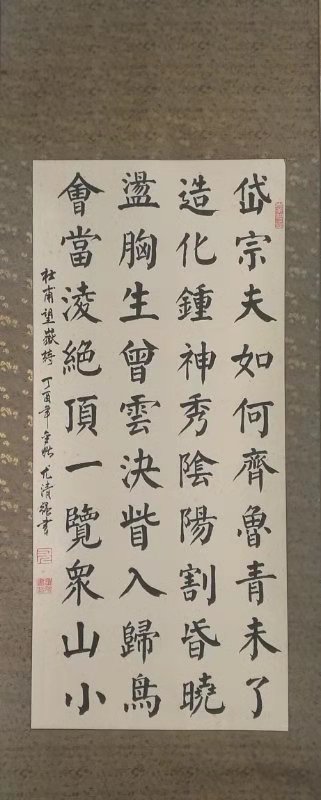 岱宗夫如何齊魯青未了
造化鍾神秀陰陽割昏曉
盪胸生曾雲決眥入歸鳥
會當淩絕頂一覽眾山小
杜甫望嶽 丁酉年 尤清 書